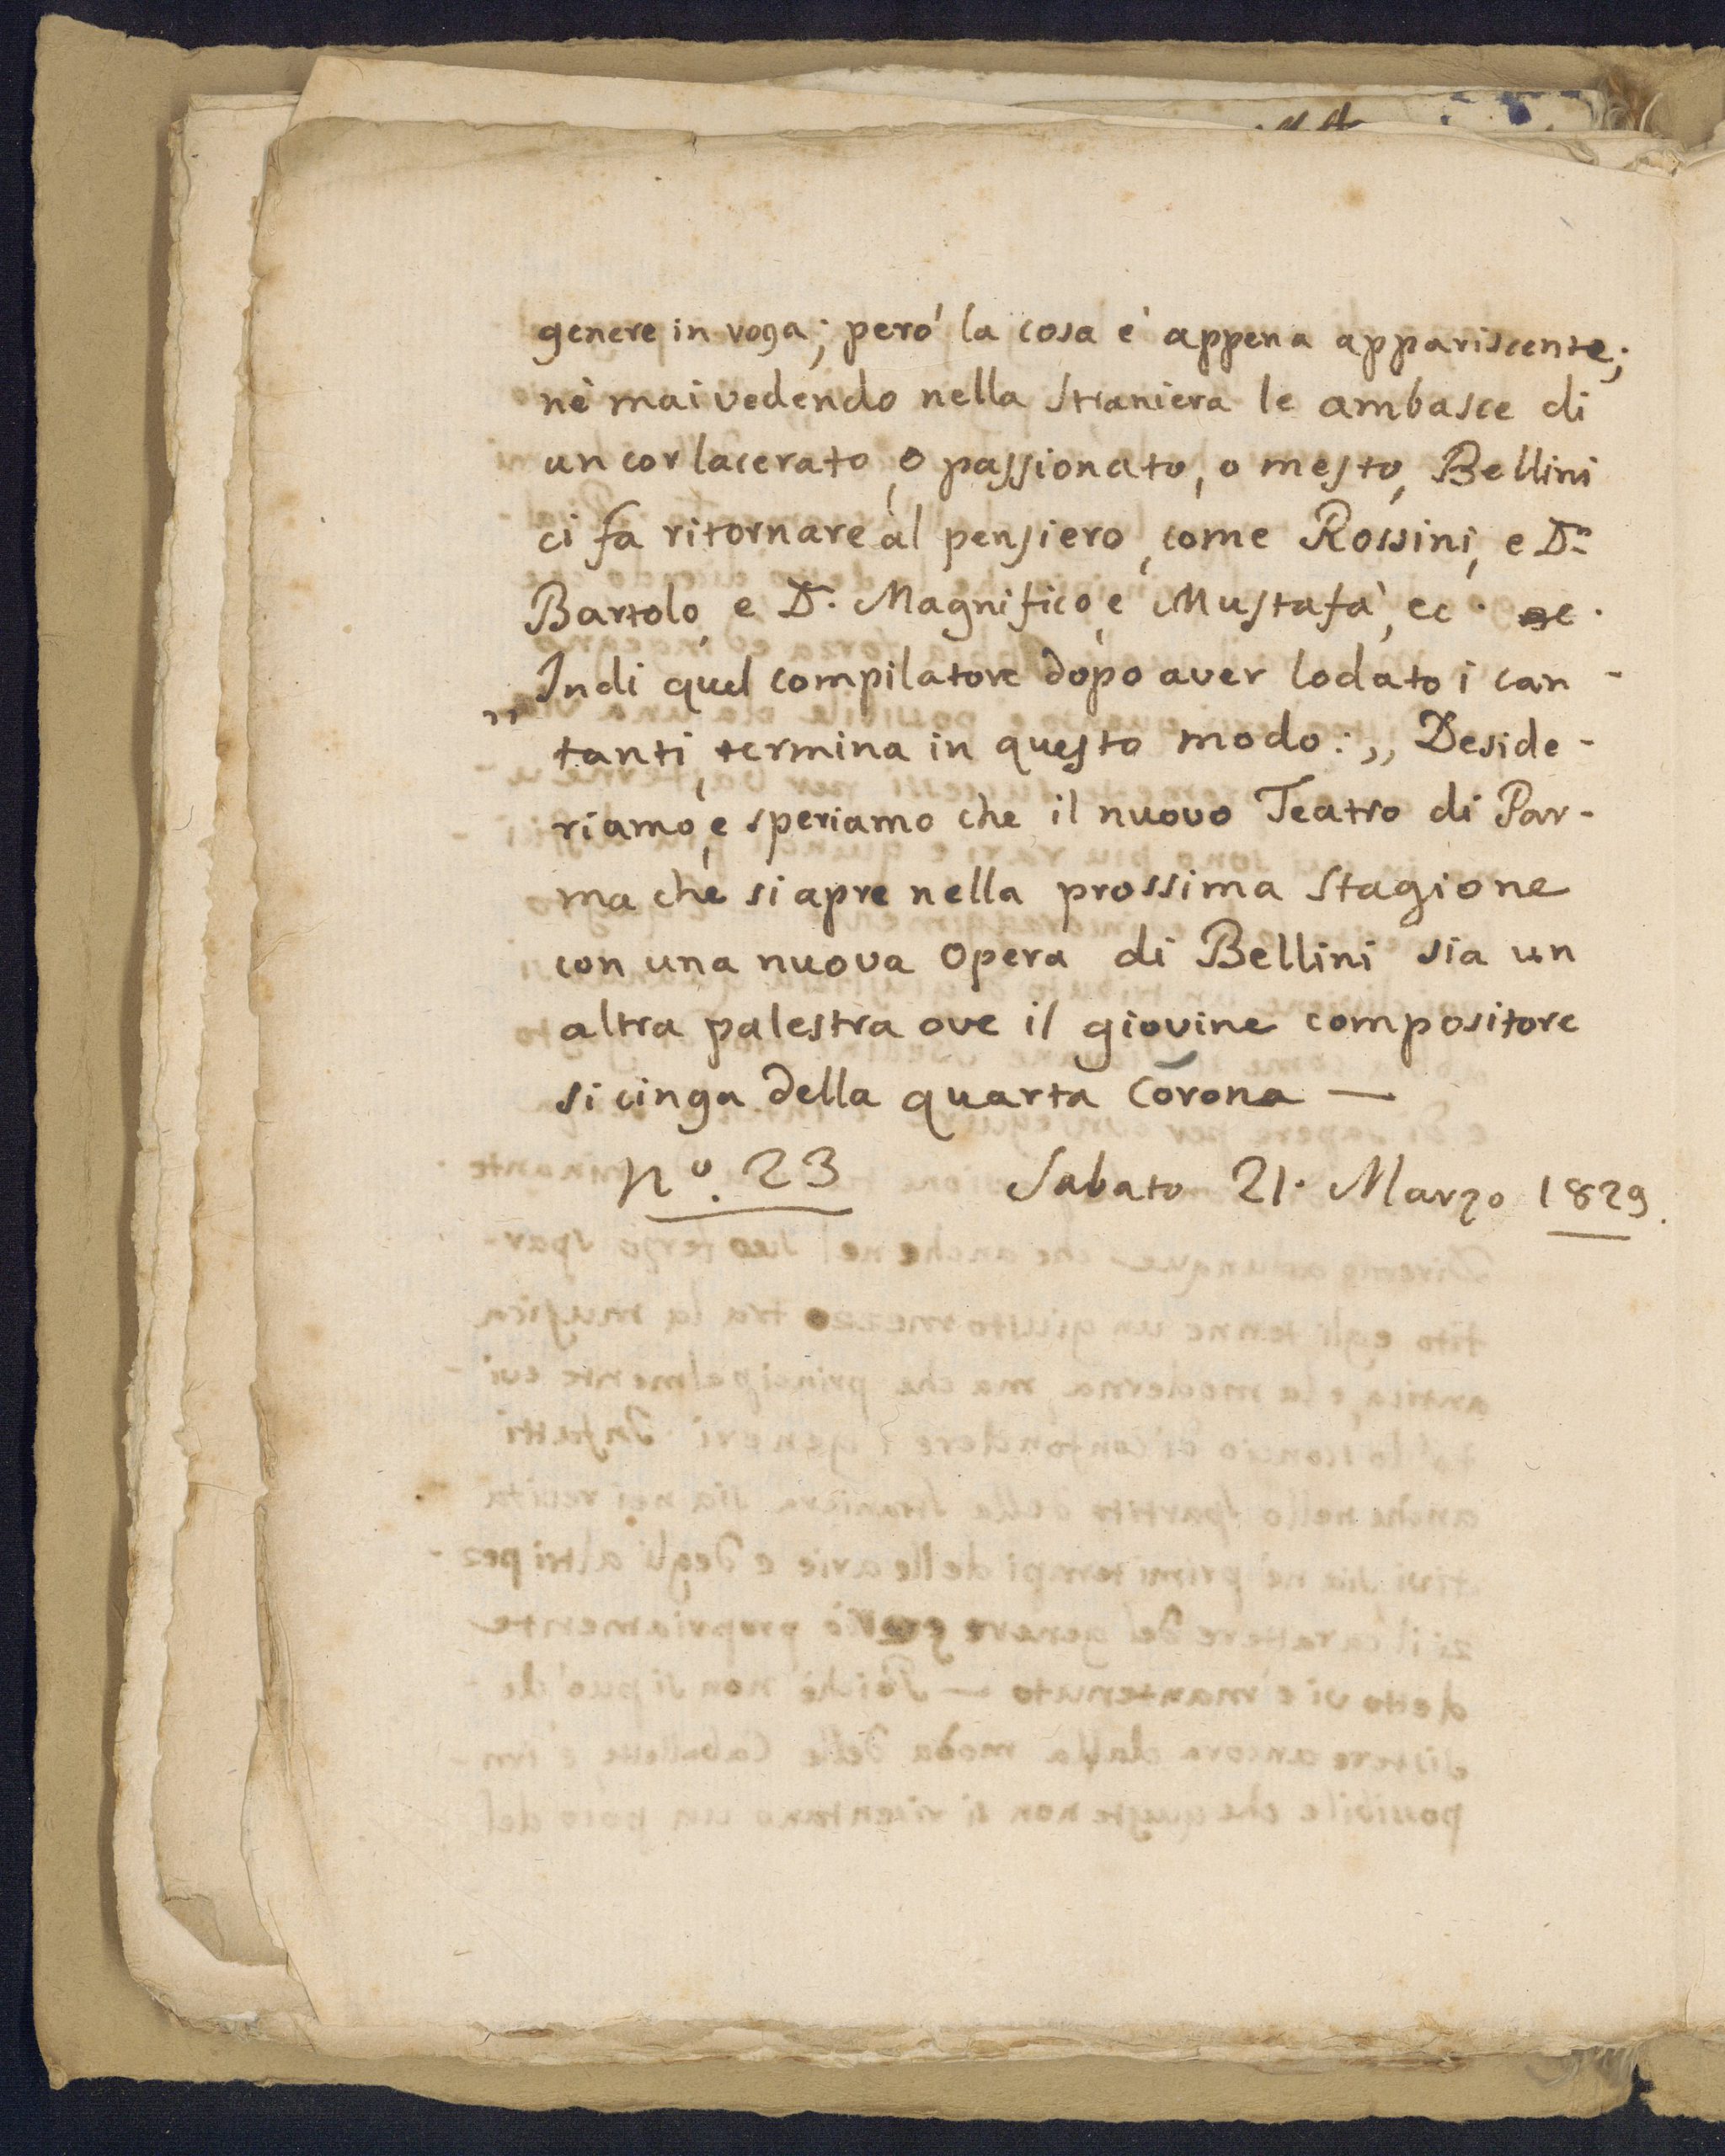 genere in voga; peró la cosa é appena appariscente;
nè mai vedendo nella Straniera le ambasce di
un cor lacerato, o passionato, o mesto, Bellini
ci fa ritornare al pensiero, come Rossini, e Dn
Bartolo, e D. Magnifico, e Mustafà, ec. ec.
Indi quel compilatore dopo aver lodato i can-
„ tanti, termina in questo modo: „ Deside-
riamo, e speriamo che il nuovo Teatro di Par-
ma che si apre nella prossima Stagione
con una nuova Opera di Bellini sia un
altra palestra ove il giovine compositore
si cinga della quarta Corona —
No. 23 Sabato 21. Marzo 1829.